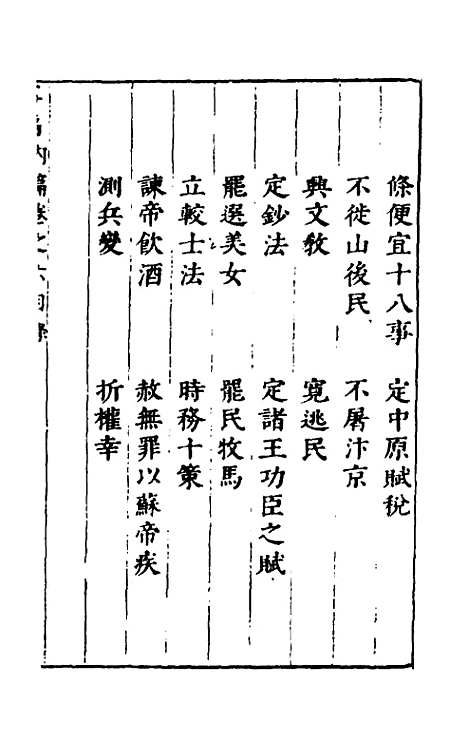 條便宜十八事　定中原賦稅
不徙山後民　不屠汴京
興文教　寛逃民
定鈔法　定諸王功臣之賦
罷選美女　罷民牧馬
立較士法　時務十策
諫帝飲酒　赦無罪以蘇帝疾
測兵變　折權幸
内篇卷之六目